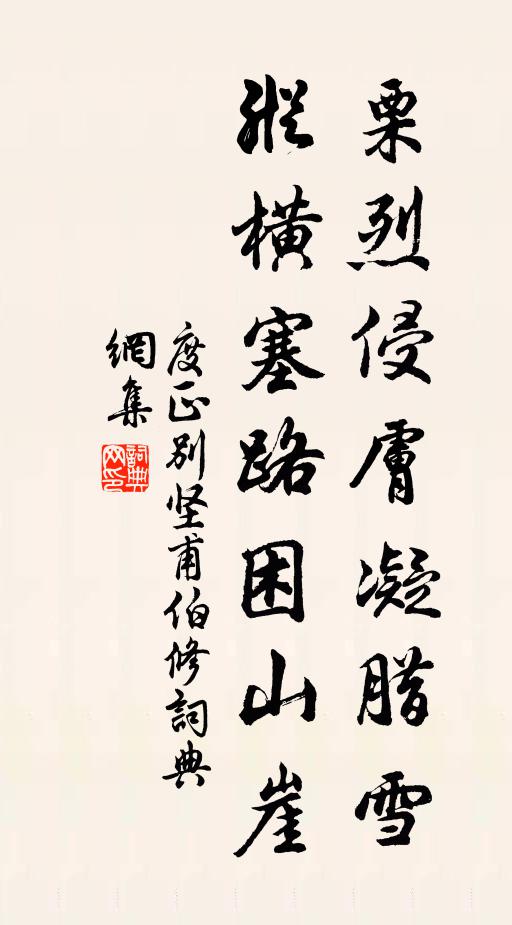 栗烈侵膚凝腊雪
縱横塞路困山崖
度正别坚甫伯修詞典
網集
詞典
网印